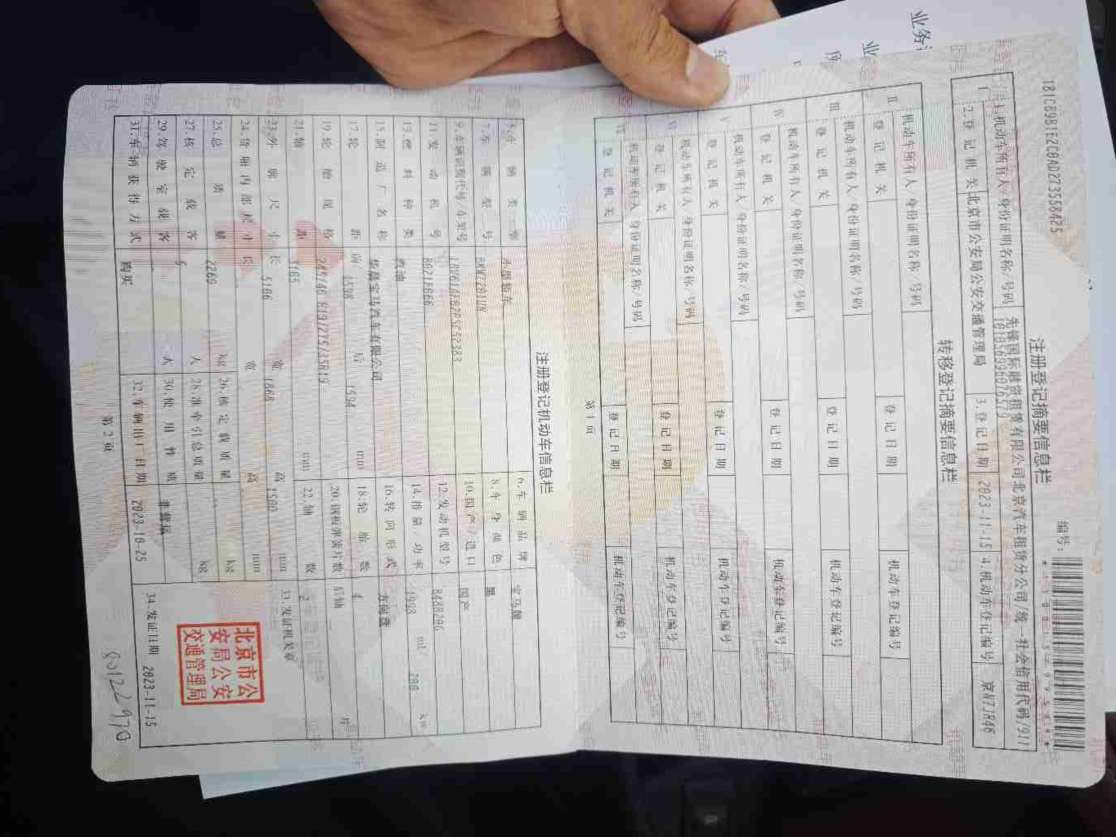 181C89B1E2C8AD273558425
编号:
注册登记摘要信息栏
Ⅰ
1.机动车所有人/身份证明名称/号码
先锋国际融资租赁有限公司北京汽车租赁分公司/统一社会信用代码/911
2.登记机关
北京市公安局公安交通管理局
3.登记日期
2023-11-15
4.机动车登记编号
转移登记摘要信息栏
Ⅱ
机动车所有人/身份证明名称/号码
登记机关
登记日期
机动车登记编号
Ⅲ
机动车所有人/身份证明名称/号码
登记机关
登记日期
机动车登记编号
Ⅳ
机动车所有人/身份证明名称/号码
登记机关
登记日期
机动车登记编号
Ⅴ
机动车所有人/身份证明名称/号码
登记机关
登记日期
机动车登记编号
Ⅵ
机动车所有人/身份证明名称/号码
登记机关
登记日期
机动车登记编号
Ⅶ
机动车所有人/身份证明名称/号码
登记机关
登记日期
机动车登记编号
第1页
注册登记机动车信息栏
5.车辆类型
小型轿车
6.车辆品牌
宝马牌
7.车辆型号
8.车身颜色
黑
9.车辆识别代号/车架号
10.国产/进口
国产
11.发动机号
12.发动机型号
13.燃料种类
汽油
14.排量/功率
1998 ml/ kw
15.制造厂名称
华晨宝马汽车有限公司
16.转向形式
方向盘
17.轮距
前 1598 后 1594 mm
18.轮胎数
4
19.轮胎规格
20.钢板弹簧片数
后轴 片
21.轴距
3105 mm
22.轴数
2
23.外廓尺寸
长 5106 宽 1868 高 1500 mm
33.发证机关章
24.货厢内部尺寸
长 宽 高 mm
北京市公
安局公安
交通管理局
25.总质量
2260 kg
26.核定载质量
kg
27.核定载客
5 人
28.准牵引总质量
kg
29.驾驶室载客
人
30.使用性质
非营运
31.车辆获得方式
购买
32.车辆出厂日期
2023-10-25
34.发证日期
2023-11-15
第2页